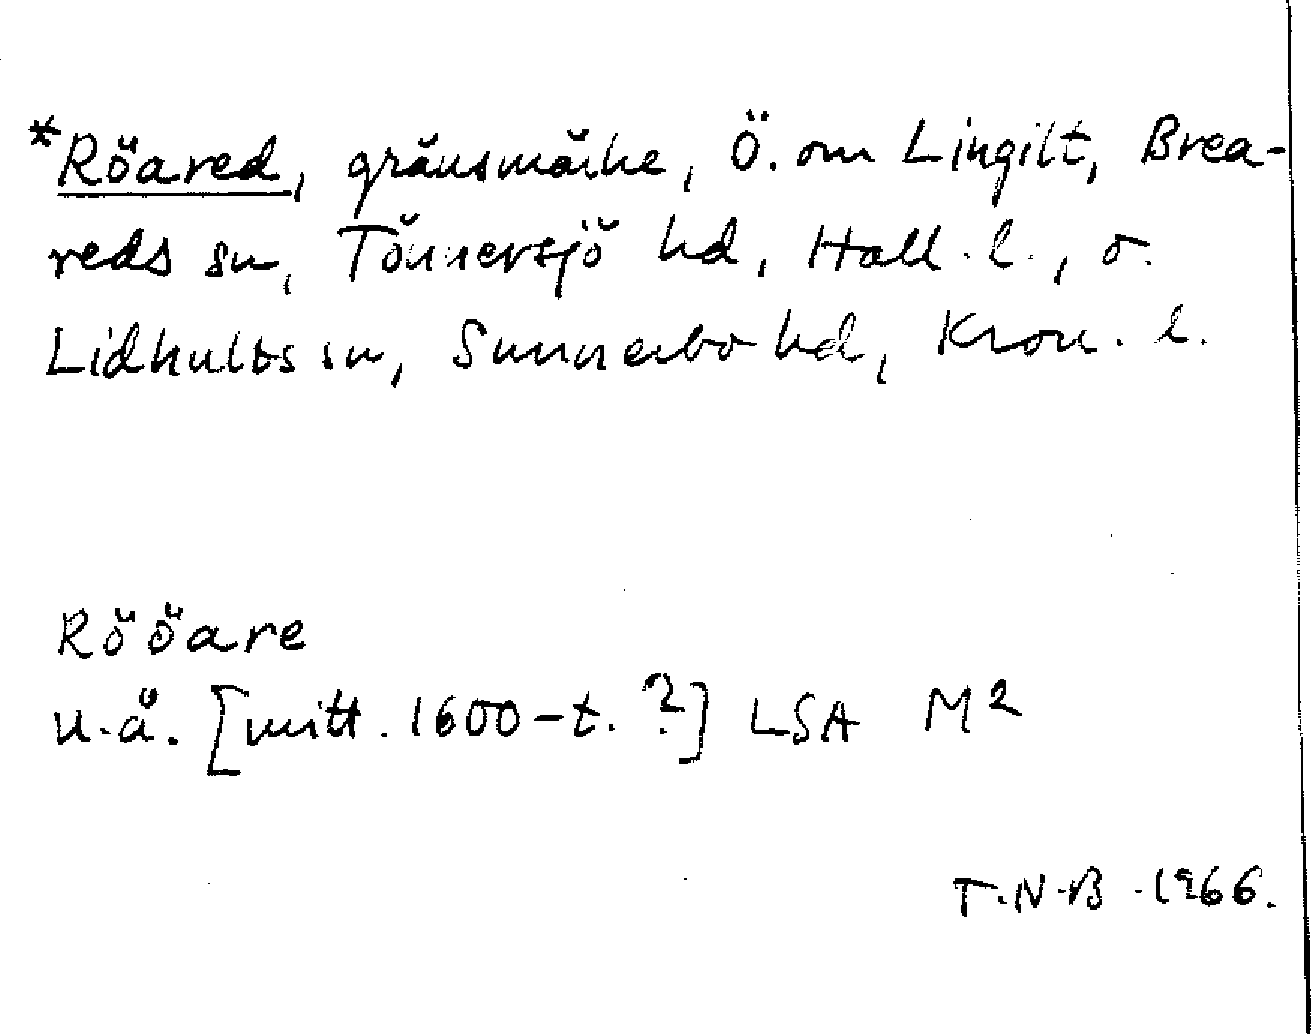 *Röared, gränsmärke, Ö. om Lingilt, Brea-
reds sn, Tönnersjö hd, Hall. l., o.
Lidhults sn, Sunnerbo hd, Kron. l.
Rööare
u.å. [mitt. 1600-t. ?] LSA M2
T.N.B. 1966.